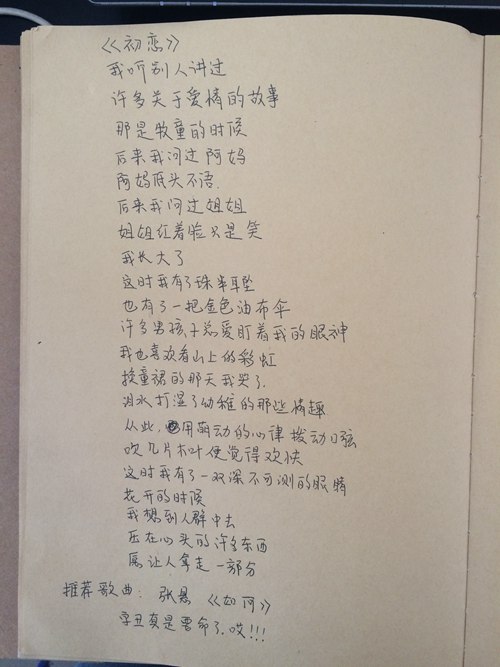 《初恋》
我听别人讲过
许多关于爱情的故事
那是牧童的时候
后来我问过阿妈
阿妈低头不语.
后来我问过姐姐
姐姐红着脸只是笑
我长大了
这时我有了珠串耳坠
也有了一把金色油布伞
许多男孩子总爱盯着我的眼神
我也喜欢看山上的彩虹
换童裙的那天我哭了.
泪水打湿了幼稚的那些情趣
从此,用萌动的心律拨动口弦
吹几片木叶便觉得欢快
这时我有了一双深不可测的眼睛
花开的时候
我想到人群中去
压在心头的许多东西
愿让人拿走一部分
推荐歌曲: 张悬 《如何》
字丑真是要命了.哎!!!